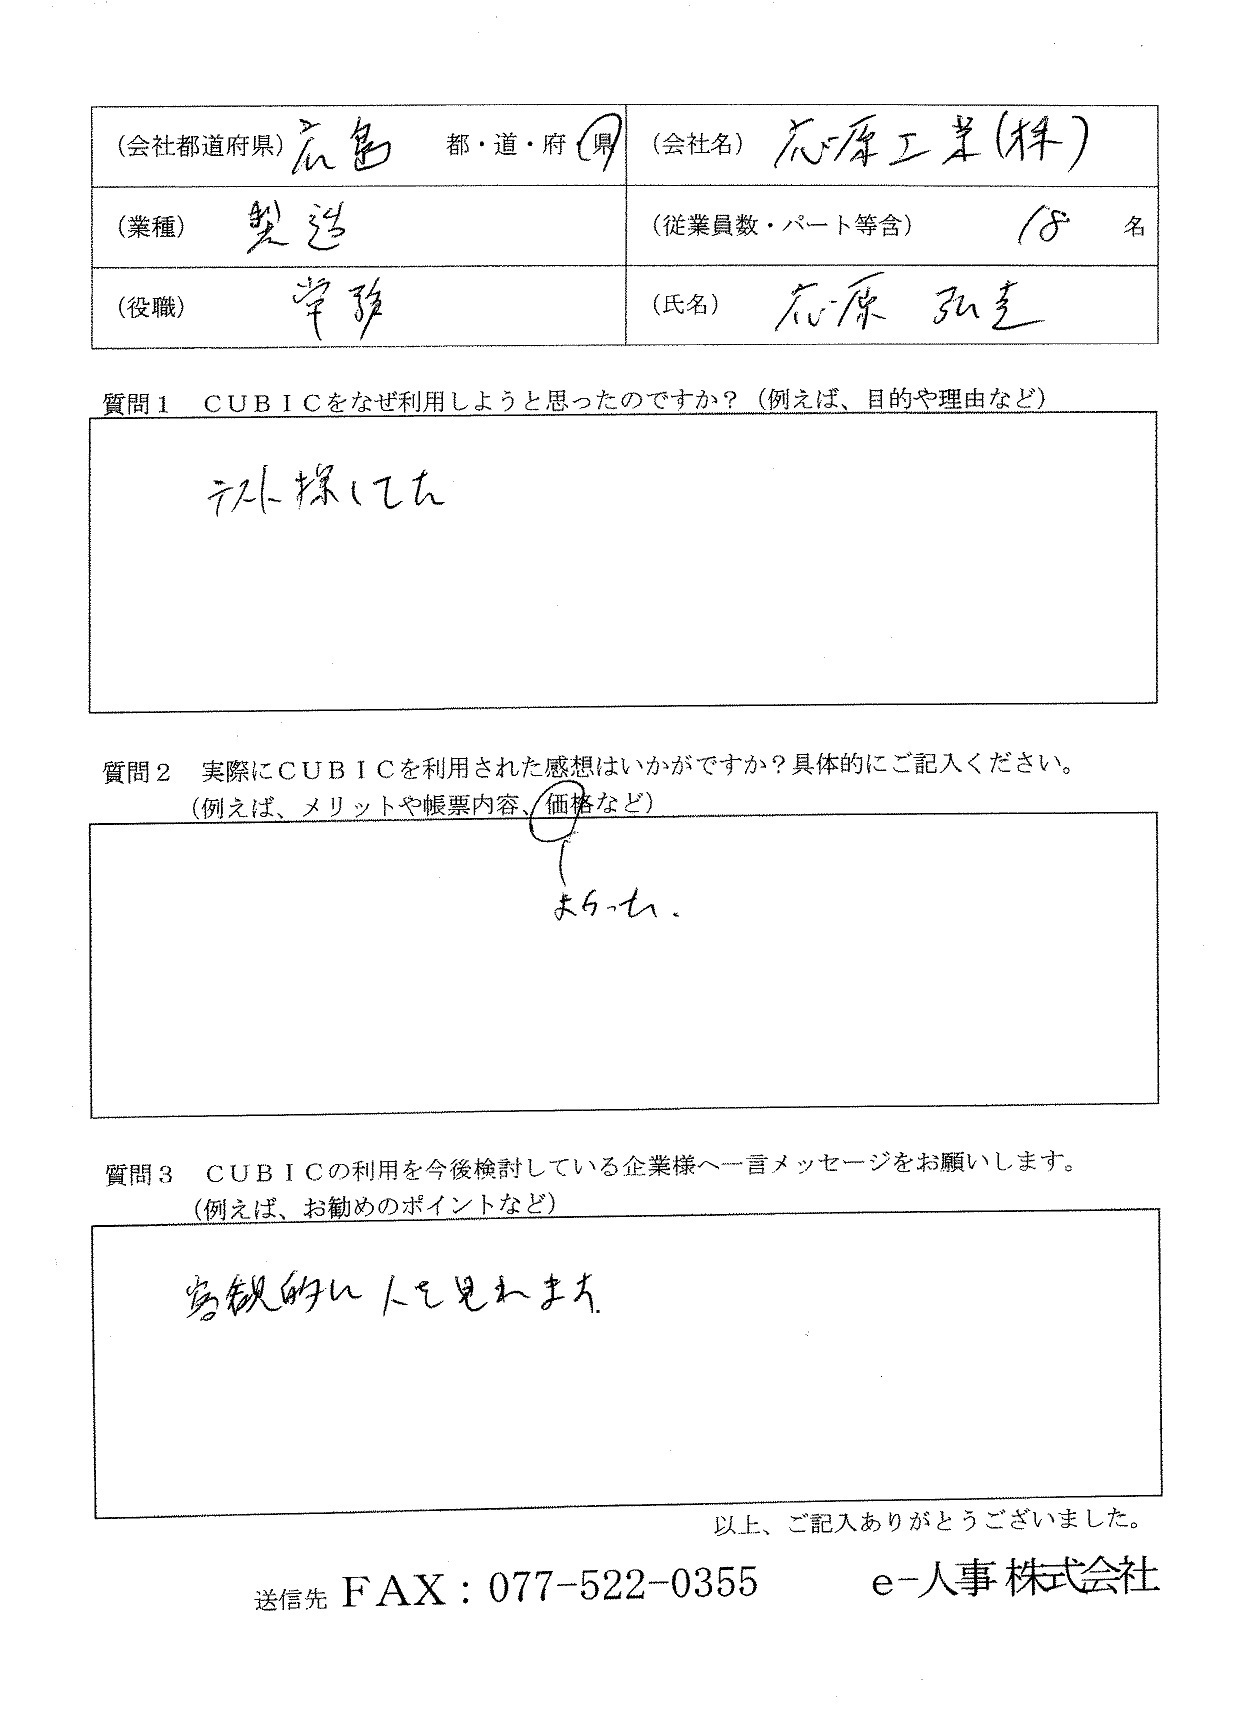 （会社都道府県） 広島 都・道・府・県 （会社名） 応原工業(株)
（業種） 製造 （従業員数・パート等含） 18 名
（役職） 常務 （氏名） 応原
質問１　ＣＵＢＩＣをなぜ利用しようと思ったのですか？（例えば、目的や理由など）
テスト探してた
質問２　実際にＣＵＢＩＣを利用された感想はいかがですか？具体的にご記入ください。
（例えば、メリットや帳票内容、価格など）
質問３　ＣＵＢＩＣの利用を今後検討している企業様へ一言メッセージをお願いします。
（例えば、お勧めのポイントなど）
客観的に人を見れます.
以上、ご記入ありがとうございました。
送信先 ＦＡＸ：077-522-0355 e-人事 株式会社